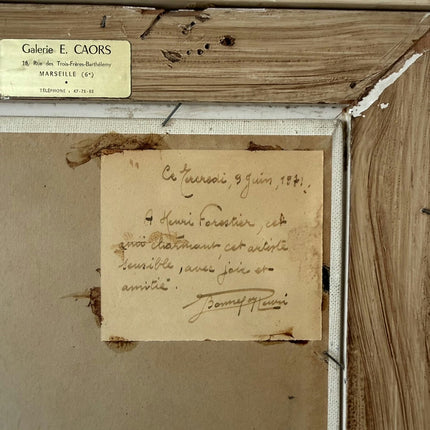 Galerie E. CAORS
18, Rue des Trois-Frères-Barthélemy
MARSEILLE (6e)
TÉLÉPHONE : 47-75-82
Ce Mercredi, 9 Juin, 1971,
A Henri Forestier, cet
ami charmant, cet artiste
sensible, avec joie et
amitié.
Henri